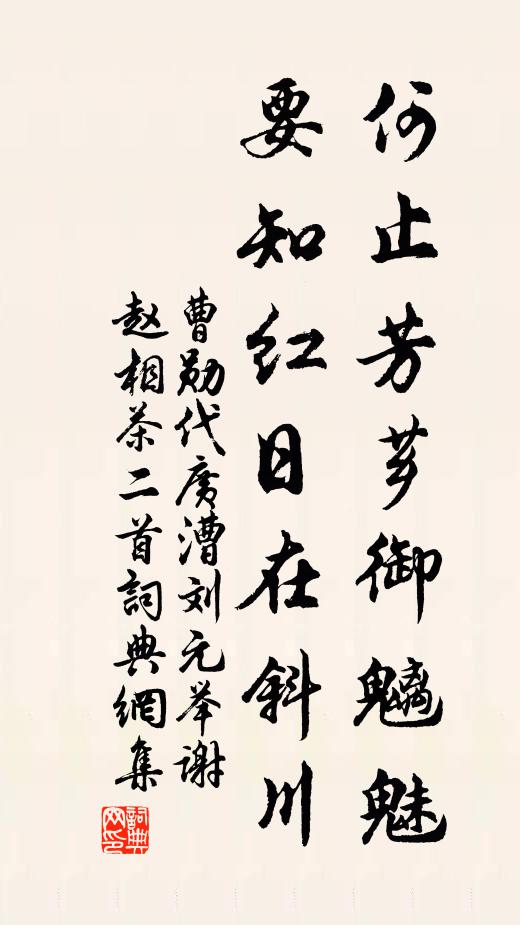 何止芳芗御魑魅
要知红日在斜川
曹勋代廣漕刘元举谢
赵相茶二首詞典網集
詞典网印